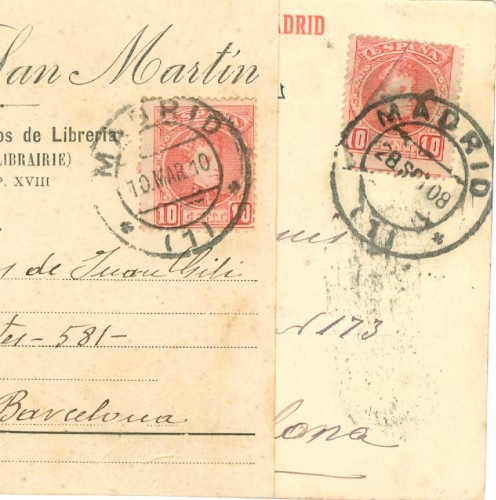 San Martín
os de Librería
LIBRAIRIE)
P. XVIII
MADRID
10.MAR.10
* (1) *
10 10
s de Juan Gili
581-
Barcelona
MADRID
ESPAÑA
10 10
MADRID
28.SEP.08
* (1) *
173
lona